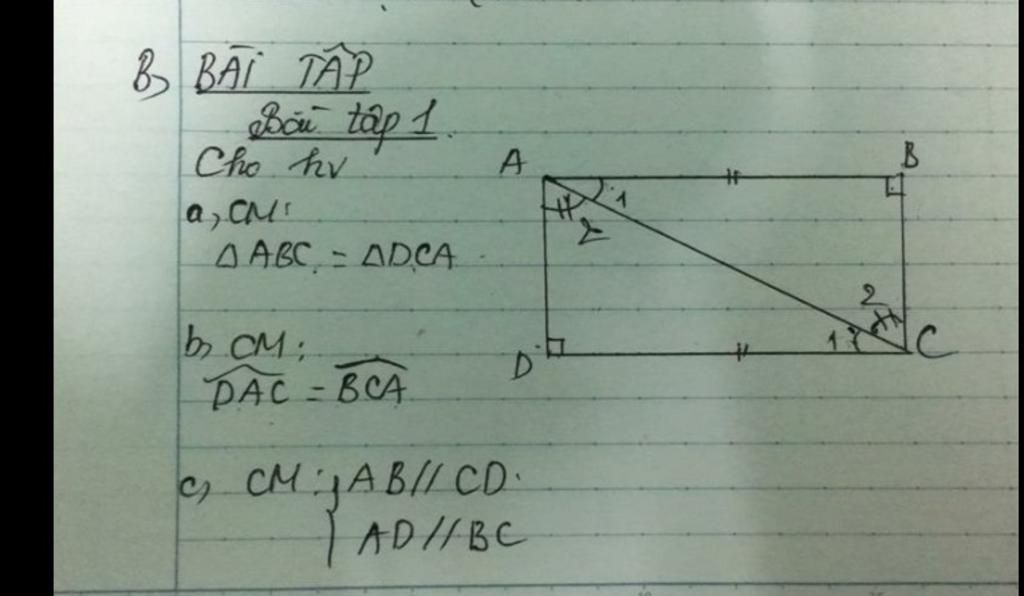 B, BÀI TẬP
Bài tập 1.
Cho hv
a, CM:
△ABC = △DCA
b, CM:
\widehat{DAC} = \widehat{BCA}
c, CM: { AB // CD.
AD // BC
A
B
1
2
2
1
C
D